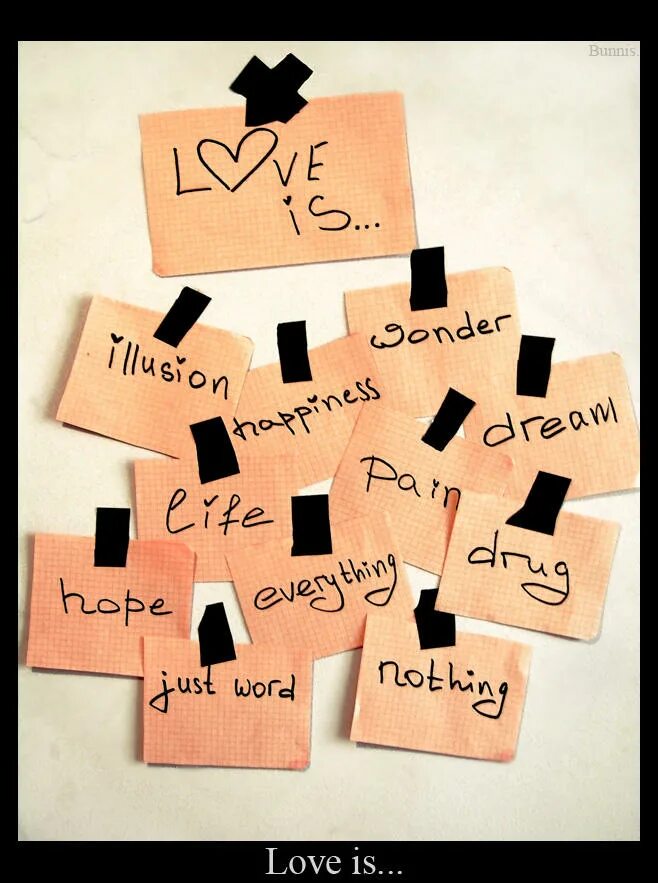 Bunnis.
LOVE
is...
wonder
illusion
happiness
dream
pain
life
drug
everything
hope
just word
nothing
Love is...